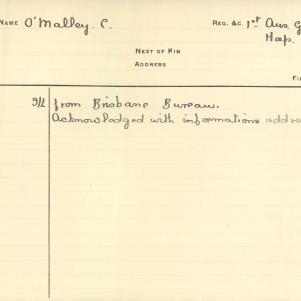 NAME O'Malley. C. REG. &C. 1st Aus. G
Hosp.
NEXT OF KIN
ADDRESS
FI
from Brisbane Bureau.
Acknowledged with informations addre